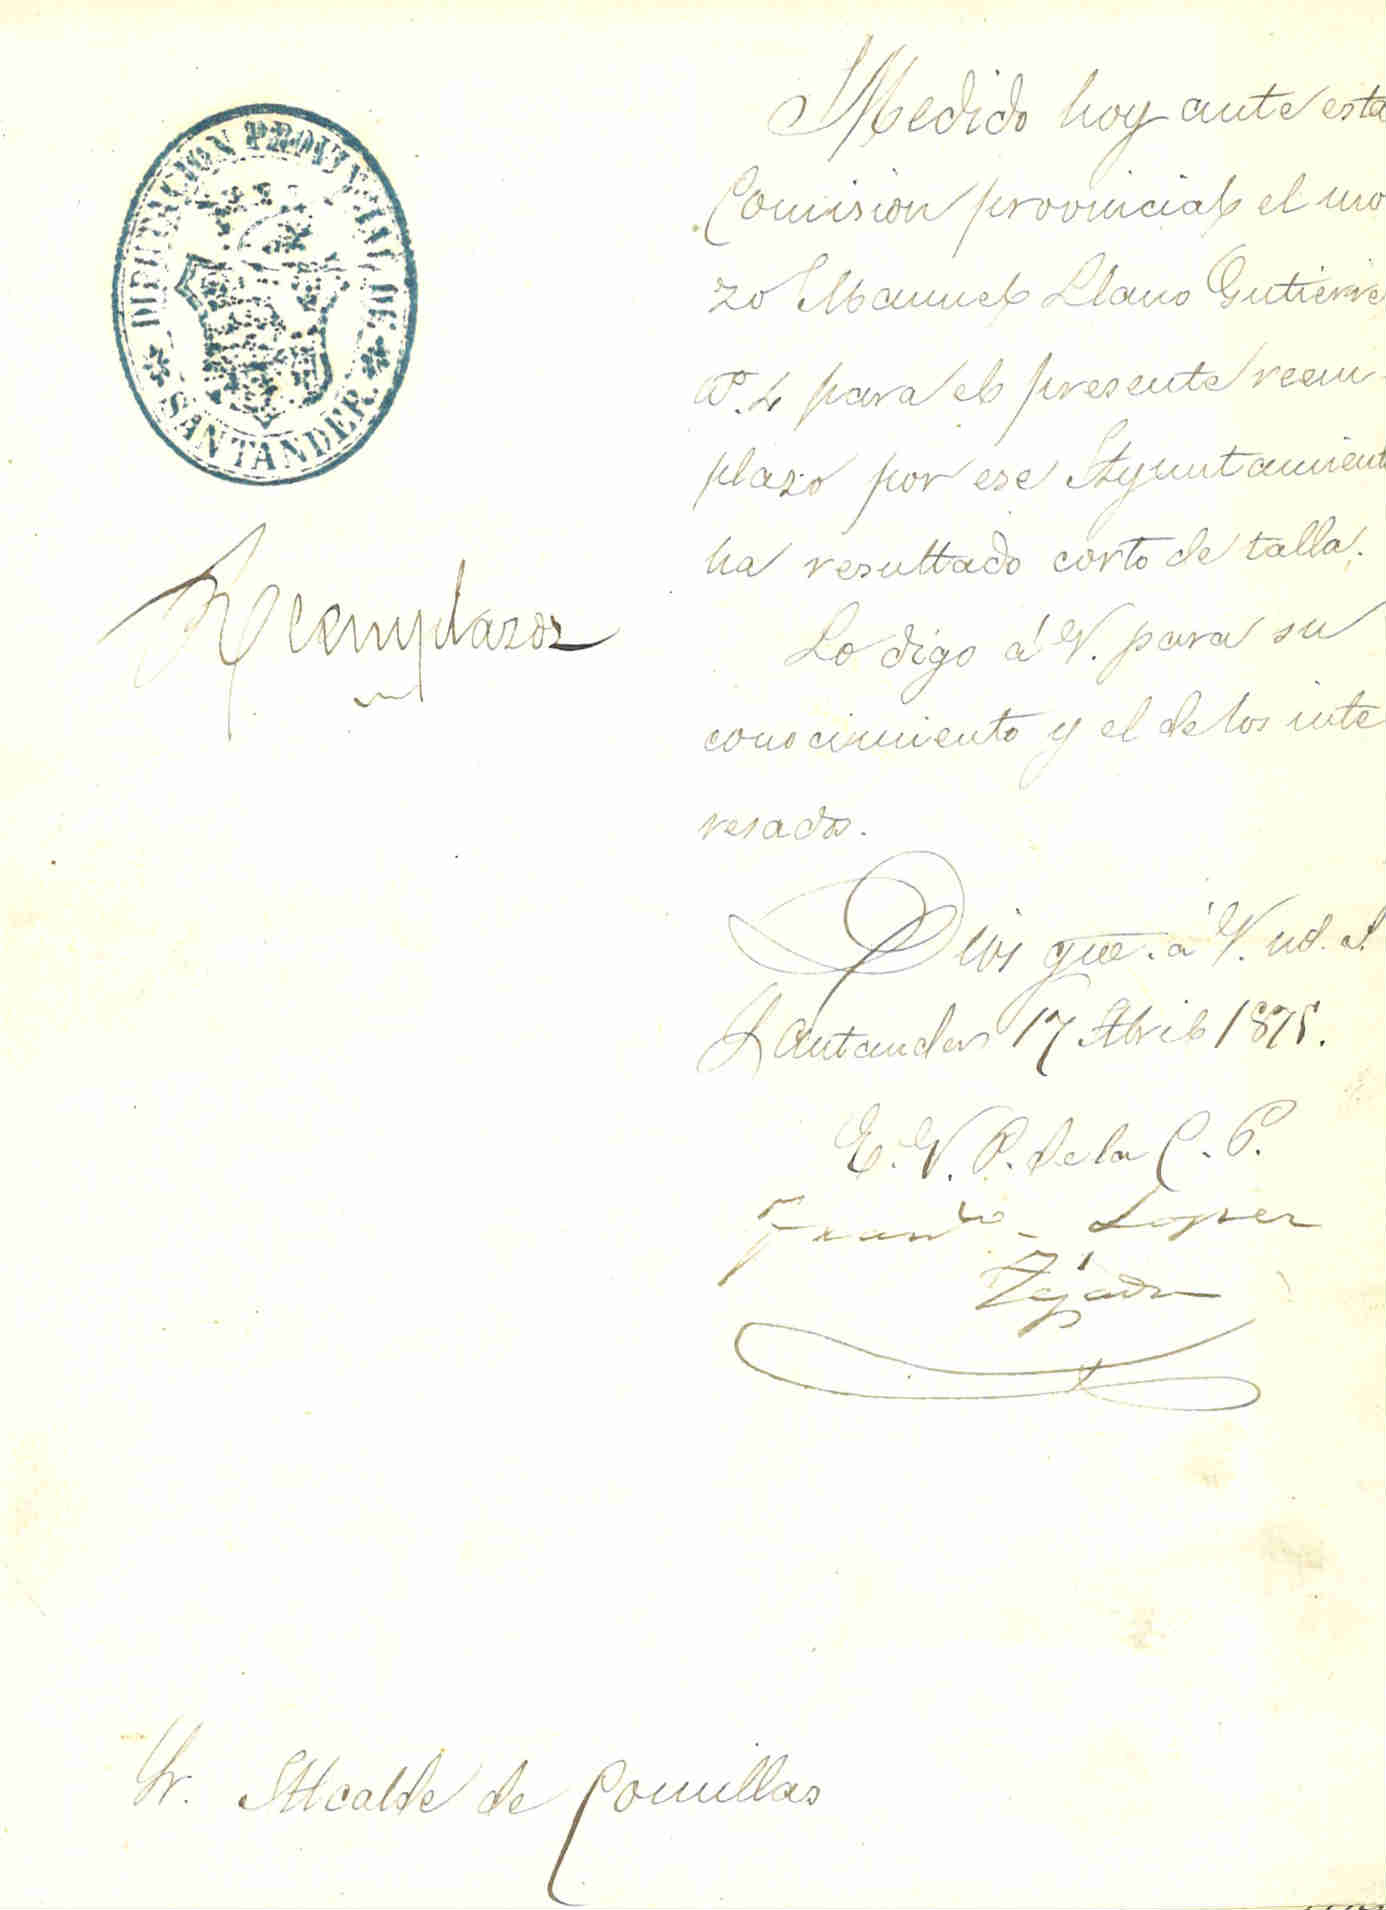 DIPUTACION PROVINCIAL DE
SANTANDER.
Reemplazos
Medido hoy ante esta
Comision provincial el mo
zo Manuel Llano Gutierre
para el presente reem-
plazo por ese Ayuntamient
ha resultado corto de talla.
Lo digo á V. para su
conocimiento y el de los inte
resados.
Dios gue. á V. m.s a.s
Santander 17 Abril 1875.
E. V. P. de la C. P.
Fran.co Lopez
Tejada
Sr. Alcalde de Comillas